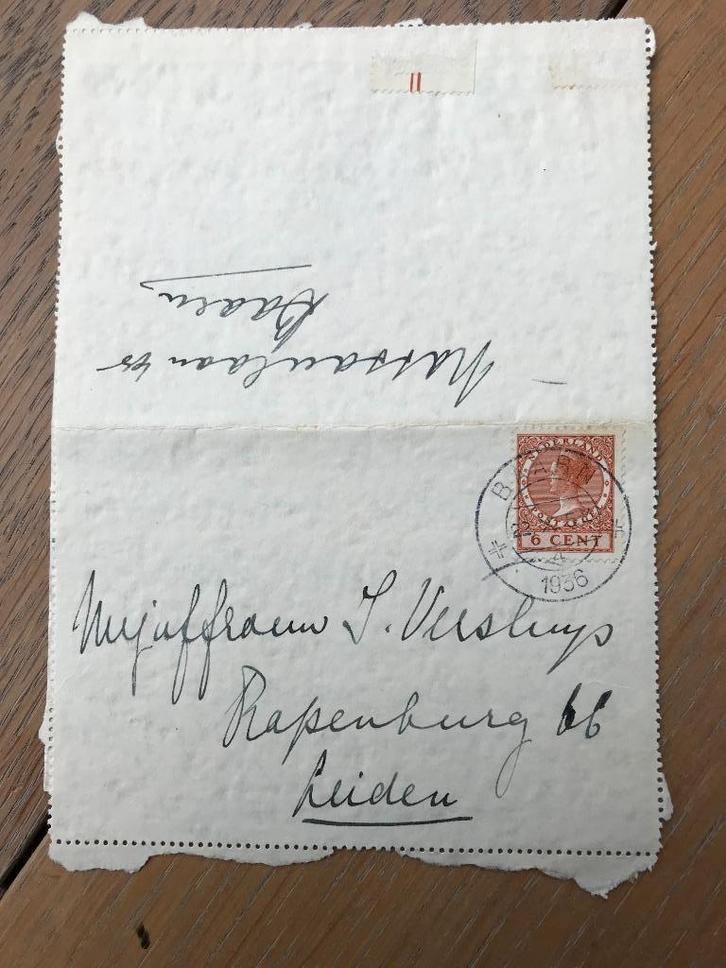 Nassaulaan
Baarn
NEDERLAND
POSTZEGEL
6 CENT
BAARN
4
1936
Mejuffrouw J. Versluys
Rapenburg 66
Leiden